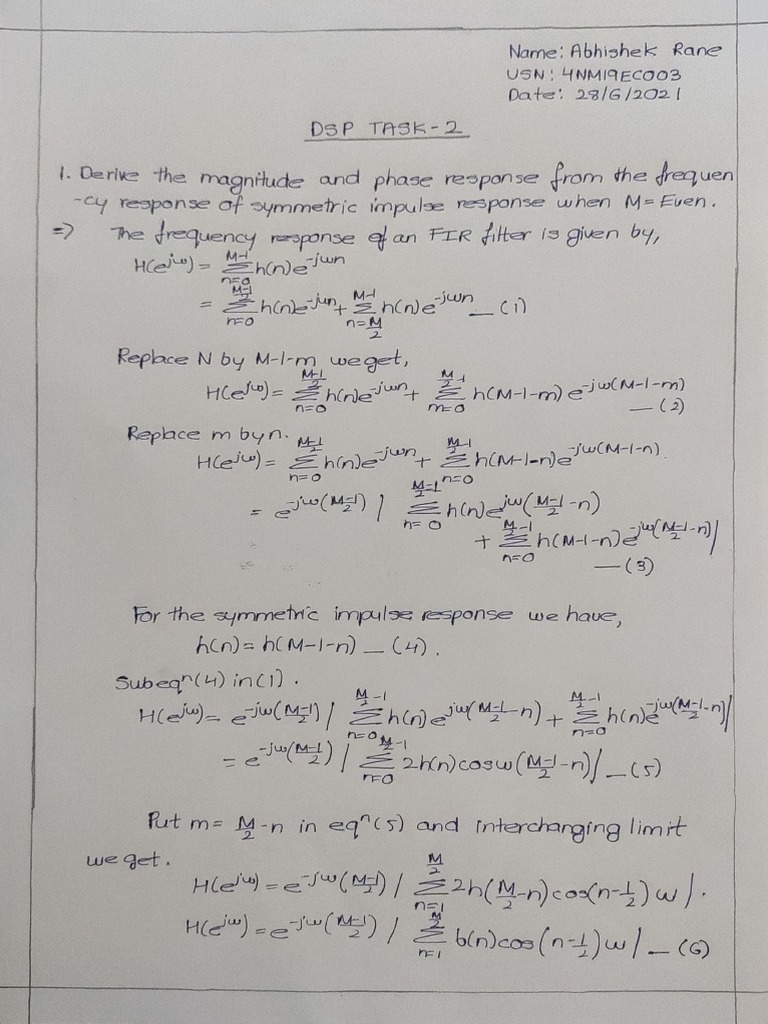 Name: Abhishek Rane
USN: 4NM19EC003
Date: 28/6/2021
DSP TASK-2
1. Derive the magnitude and phase response from the frequen
-cy response of symmetric impulse response when M= Even.
=> The frequency response of an FIR filter is given by,
H(e^{jω}) = \sum_{n=0}^{M-1} h(n)e^{-jωn}
= \sum_{n=0}^{\frac{M-1}{2}} h(n)e^{-jωn} + \sum_{n=\frac{M}{2}}^{M-1} h(n)e^{-jωn} — (1)
Replace N by M-1-m we get,
H(e^{jω}) = \sum_{n=0}^{\frac{M-1}{2}} h(n)e^{-jωn} + \sum_{m=0}^{\frac{M}{2}-1} h(M-1-m) e^{-jω(M-1-m)}
— (2)
Replace m by n.
H(e^{jω}) = \sum_{n=0}^{\frac{M-1}{2}} h(n)e^{-jωn} + \sum_{n=0}^{\frac{M}{2}-1} h(M-1-n)e^{-jω(M-1-n)}.
= e^{-jω(\frac{M-1}{2})} / \sum_{n=0}^{\frac{M}{2}-1} h(n)e^{jω(\frac{M-1}{2}-n)}
+ \sum_{n=0}^{\frac{M}{2}-1} h(M-1-n)e^{-jω(\frac{M-1}{2}-n)} /
— (3)
For the symmetric impulse response we have,
h(n) = h(M-1-n) — (4).
Sub eqⁿ(4) in (1).
H(e^{jω}) = e^{-jω(\frac{M-1}{2})} / \sum_{n=0}^{\frac{M}{2}-1} h(n)e^{jω(\frac{M-1}{2}-n)} + \sum_{n=0}^{\frac{M}{2}-1} h(n)e^{-jω(\frac{M-1}{2}-n)} /
= e^{-jω(\frac{M-1}{2})} / \sum_{n=0}^{\frac{M}{2}-1} 2h(n)cosω(\frac{M-1}{2}-n) / — (5)
Put m= \frac{M}{2}-n in eqⁿ(5) and interchanging limit
we get.
H(e^{jω}) = e^{-jω(\frac{M-1}{2})} / \sum_{n=1}^{\frac{M}{2}} 2h(\frac{M}{2}-n)cos(n-\frac{1}{2})ω /.
H(e^{jω}) = e^{-jω(\frac{M-1}{2})} / \sum_{n=1}^{\frac{M}{2}} b(n)cos(n-\frac{1}{2})ω / — (6)